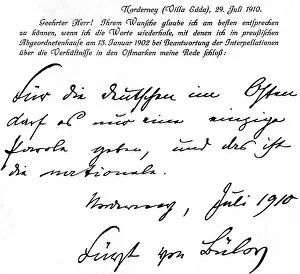 Norderney (Villa Edda), 29. Juli 1910.
Geehrter Herr! Ihrem Wunsche glaube ich am besten entsprechen
zu können, wenn ich die Worte wiederhole, mit denen ich im preußischen
Abgeordnetenhause am 13. Januar 1902 bei Beantwortung der Interpellationen
über die Verhältnisse in den Ostmarken meine Rede schloß:
Für die Deutschen im Osten
darf es nur eine einzige
Parole geben, und das ist
die nationale.
Norderney, Juli 1910
Fürst von Bülow